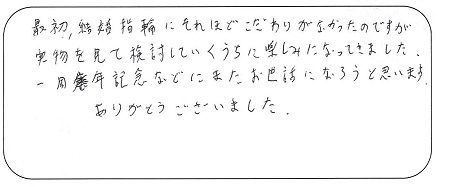 最初、結婚指輪にそれほどこだわりがなかったのですが
実物を見て検討していくうちに楽しみになってきました。
一周年記念などにまたお世話になろうと思います。
ありがとうございました。